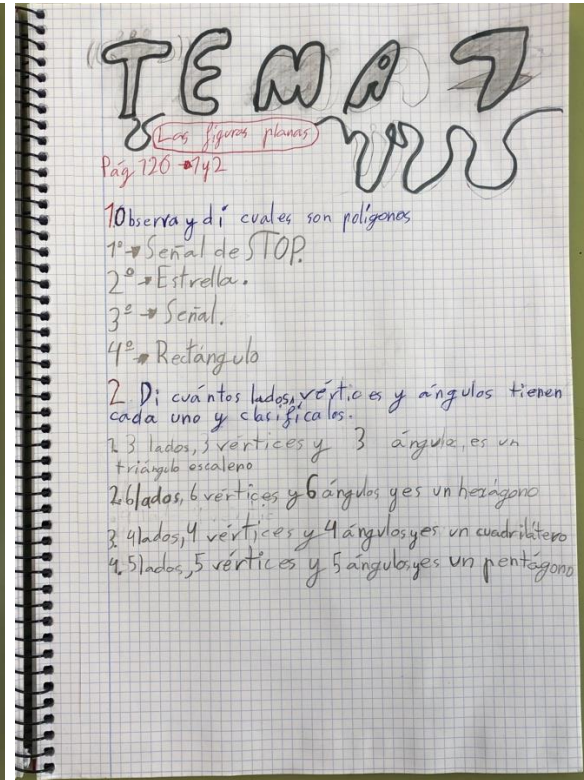 TEMA 7
Las figuras planas
Pág 126 → 1 y 2
1 Observa y di cuales son polígonos
1º → Señal de STOP.
2º → Estrella.
3º → Señal.
4º → Rectángulo
2. Di cuántos lados, vértices y ángulos tienen
cada uno y clasifícalos.
1. 3 lados, 3 vértices y 3 ángulo, es un
triángulo escaleno
2. 6 lados, 6 vértices y 6 ángulos y es un hexágono
3. 4 lados, 4 vértices y 4 ángulos y es un cuadrilátero
4. 5 lados, 5 vértices y 5 ángulos, y es un pentágono